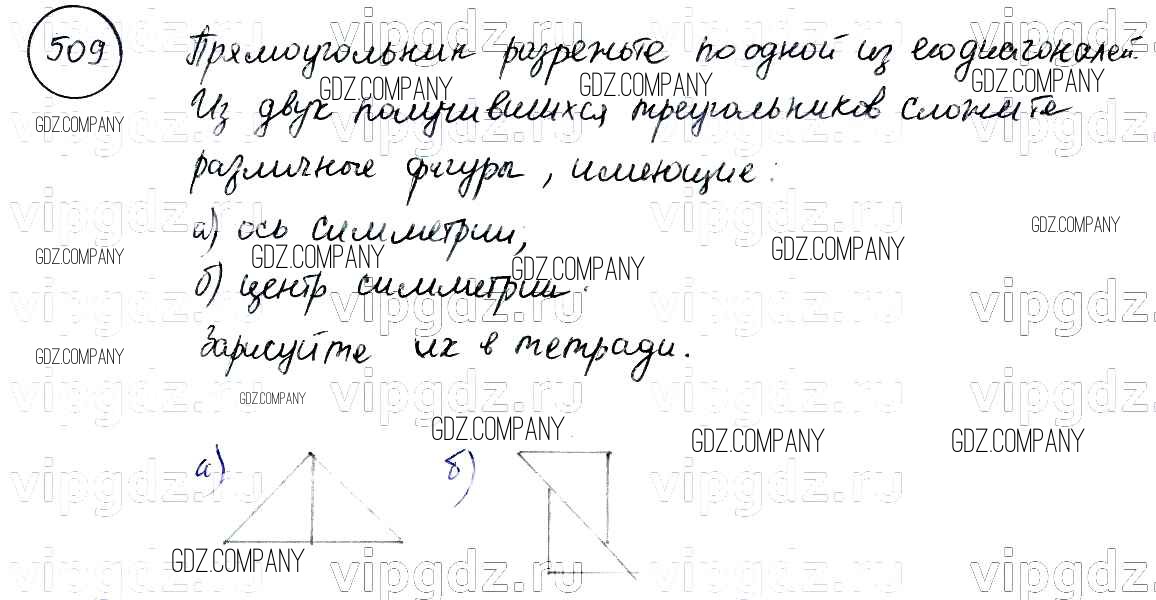 509
Прямоугольник разрежьте по одной из его диагоналей.
Из двух получившихся треугольников сложите
различные фигуры, имеющие:
а) ось симметрии,
б) центр симметрии.
Зарисуйте их в тетради.
а) б)
GDZ.COMPANY
vipgdz.ru